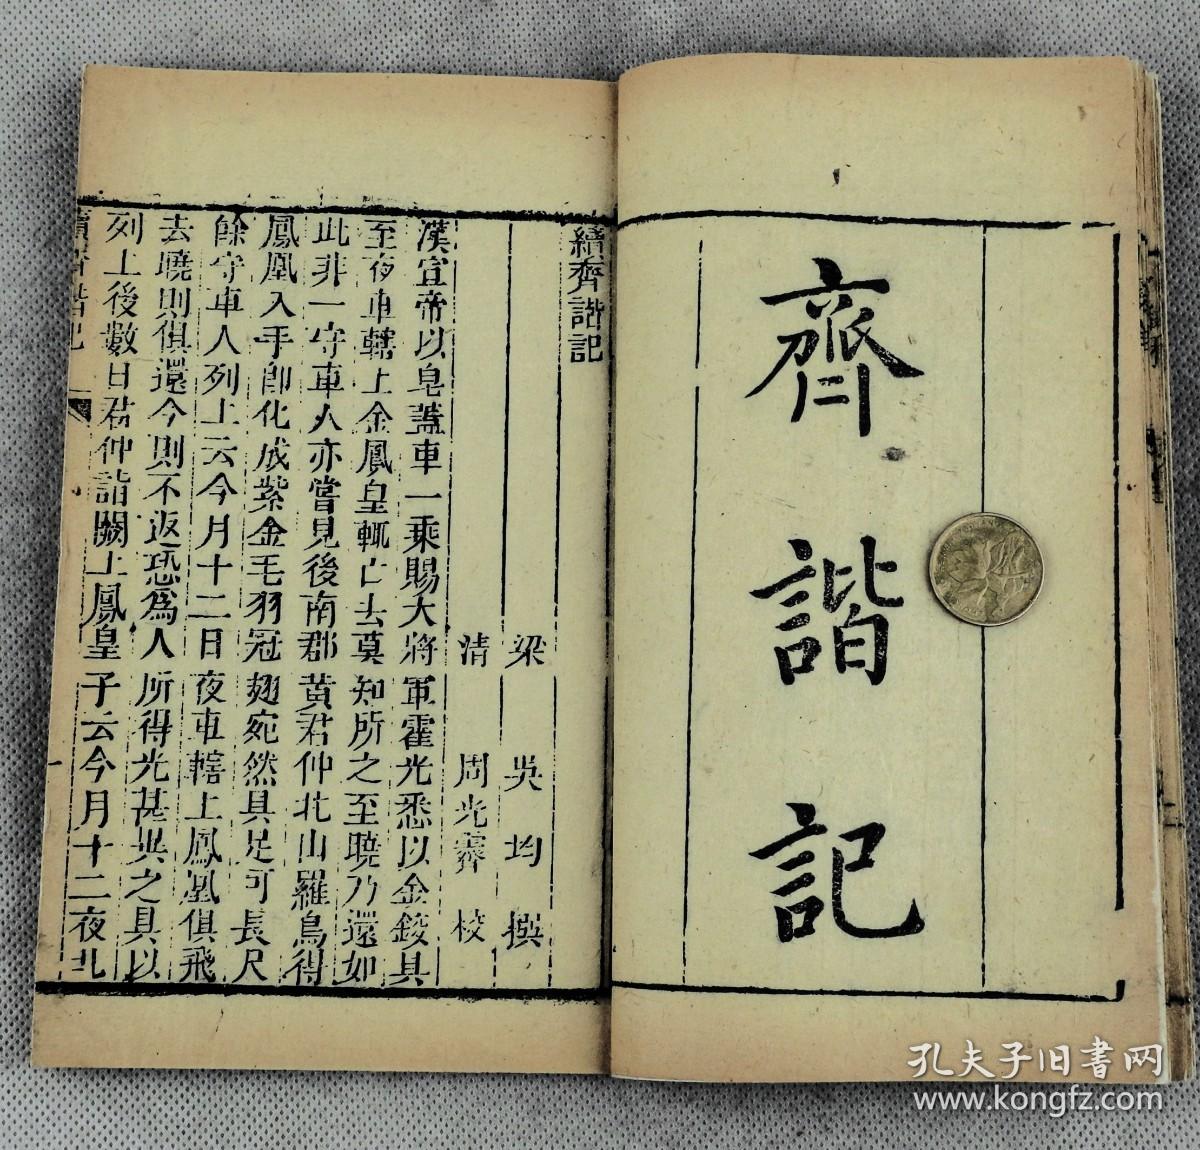 齊諧記
續齊諧記
梁 吳均 撰
清 周光霽 校
漢宣帝以皂蓋車一乘賜大將軍霍光悉以金鉸具
至夜車轄上金鳳皇輒亡去莫知所之至曉乃還如
此非一守車人亦嘗見後南郡黃君仲北山羅鳥得
鳳凰入手卽化成紫金毛羽冠翅宛然具足可長尺
餘守車人列上云今月十二日夜車轄上鳳凰俱飛
去曉則俱還今則不返恐為人所得光甚異之具以
列上後數日君仲詣闕上鳳皇子云今月十二夜北
續齊諧記
孔夫子旧书网
www.kongfz.com